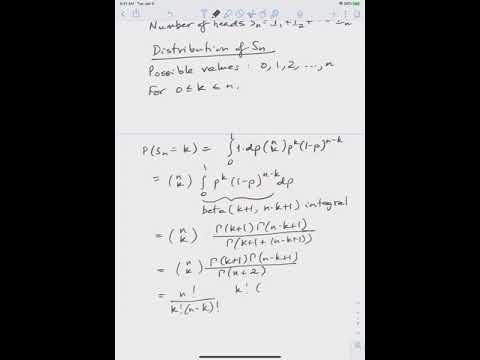 Number of heads Sn = I1 + I2 +
Distribution of Sn
Possible values : 0, 1, 2, ..., n
For 0 ≤ k ≤ n,
P(Sn = k) = ∫₀¹ 1·dp (n k) p^k (1-p)^(n-k)
= (n k) ∫₀¹ p^k (1-p)^(n-k) dp
beta(k+1, n-k+1) integral
= (n k) Γ(k+1) Γ(n-k+1) / Γ(k+1 + (n-k+1))
= (n k) Γ(k+1) Γ(n-k+1) / Γ(n+2)
= n! / k!(n-k)! k! (